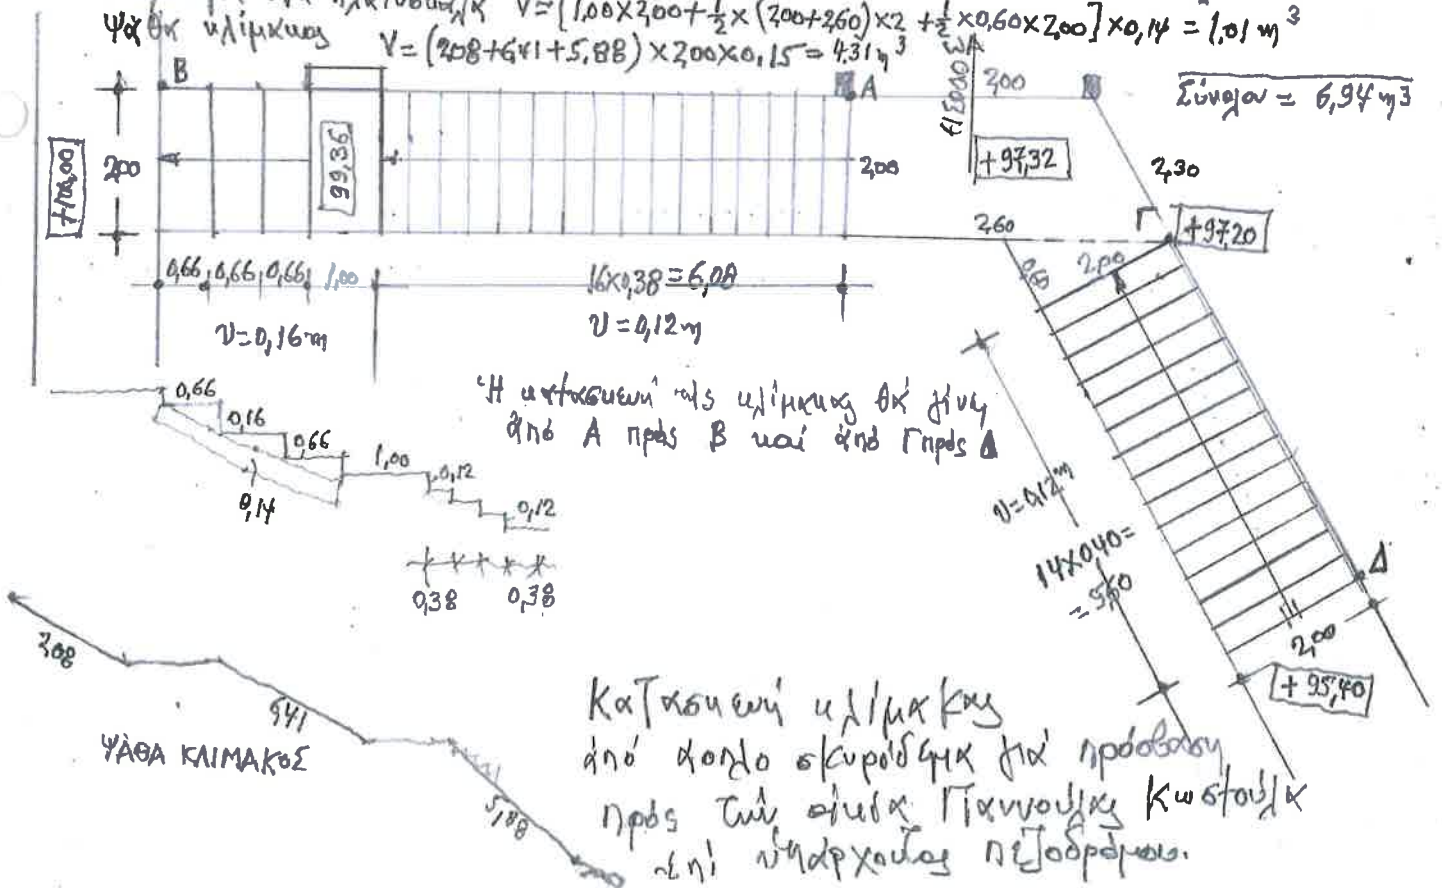 πλατύσκαλα V=[1,00×2,00+½×(2,00+2,60)×2+½×0,60×2,00]×0,14=1,01 m³
Ψάθα κλίμακας V=(2,08+6,41+5,88)×2,00×0,15=4,31 m³
Σύνολον = 6,94 m³
Β
Α
ΕΙΣΟΔΟΣ
2,00
+100,00
2,00
99,36
2,00
+97,32
2,30
2,60
Γ
+97,20
0,66 0,66 0,66 1,00
16×0,38=6,08
0,60
2,00
υ=0,16m
υ=0,12m
0,66
0,16
0,66
1,00
0,12
0,12
0,14
0,38 0,38
Ἡ κατασκευή τῆς κλίμακας θά γίνη
ἀπό Α πρός Β καί ἀπό Γ πρός Δ
υ=0,12m
14×0,40=
=5,60
Δ
2,00
+95,40
2,08
6,41
5,88
ΨΑΘΑ ΚΛΙΜΑΚΟΣ
Κατασκευή κλίμακας
ἀπό ἄοπλο σκυρόδεμα γιά πρόσβαση
πρός τήν οἰκία Γιαννούλας Κωστούλα
ἐπί ὑπάρχοντος πεζοδρόμου.